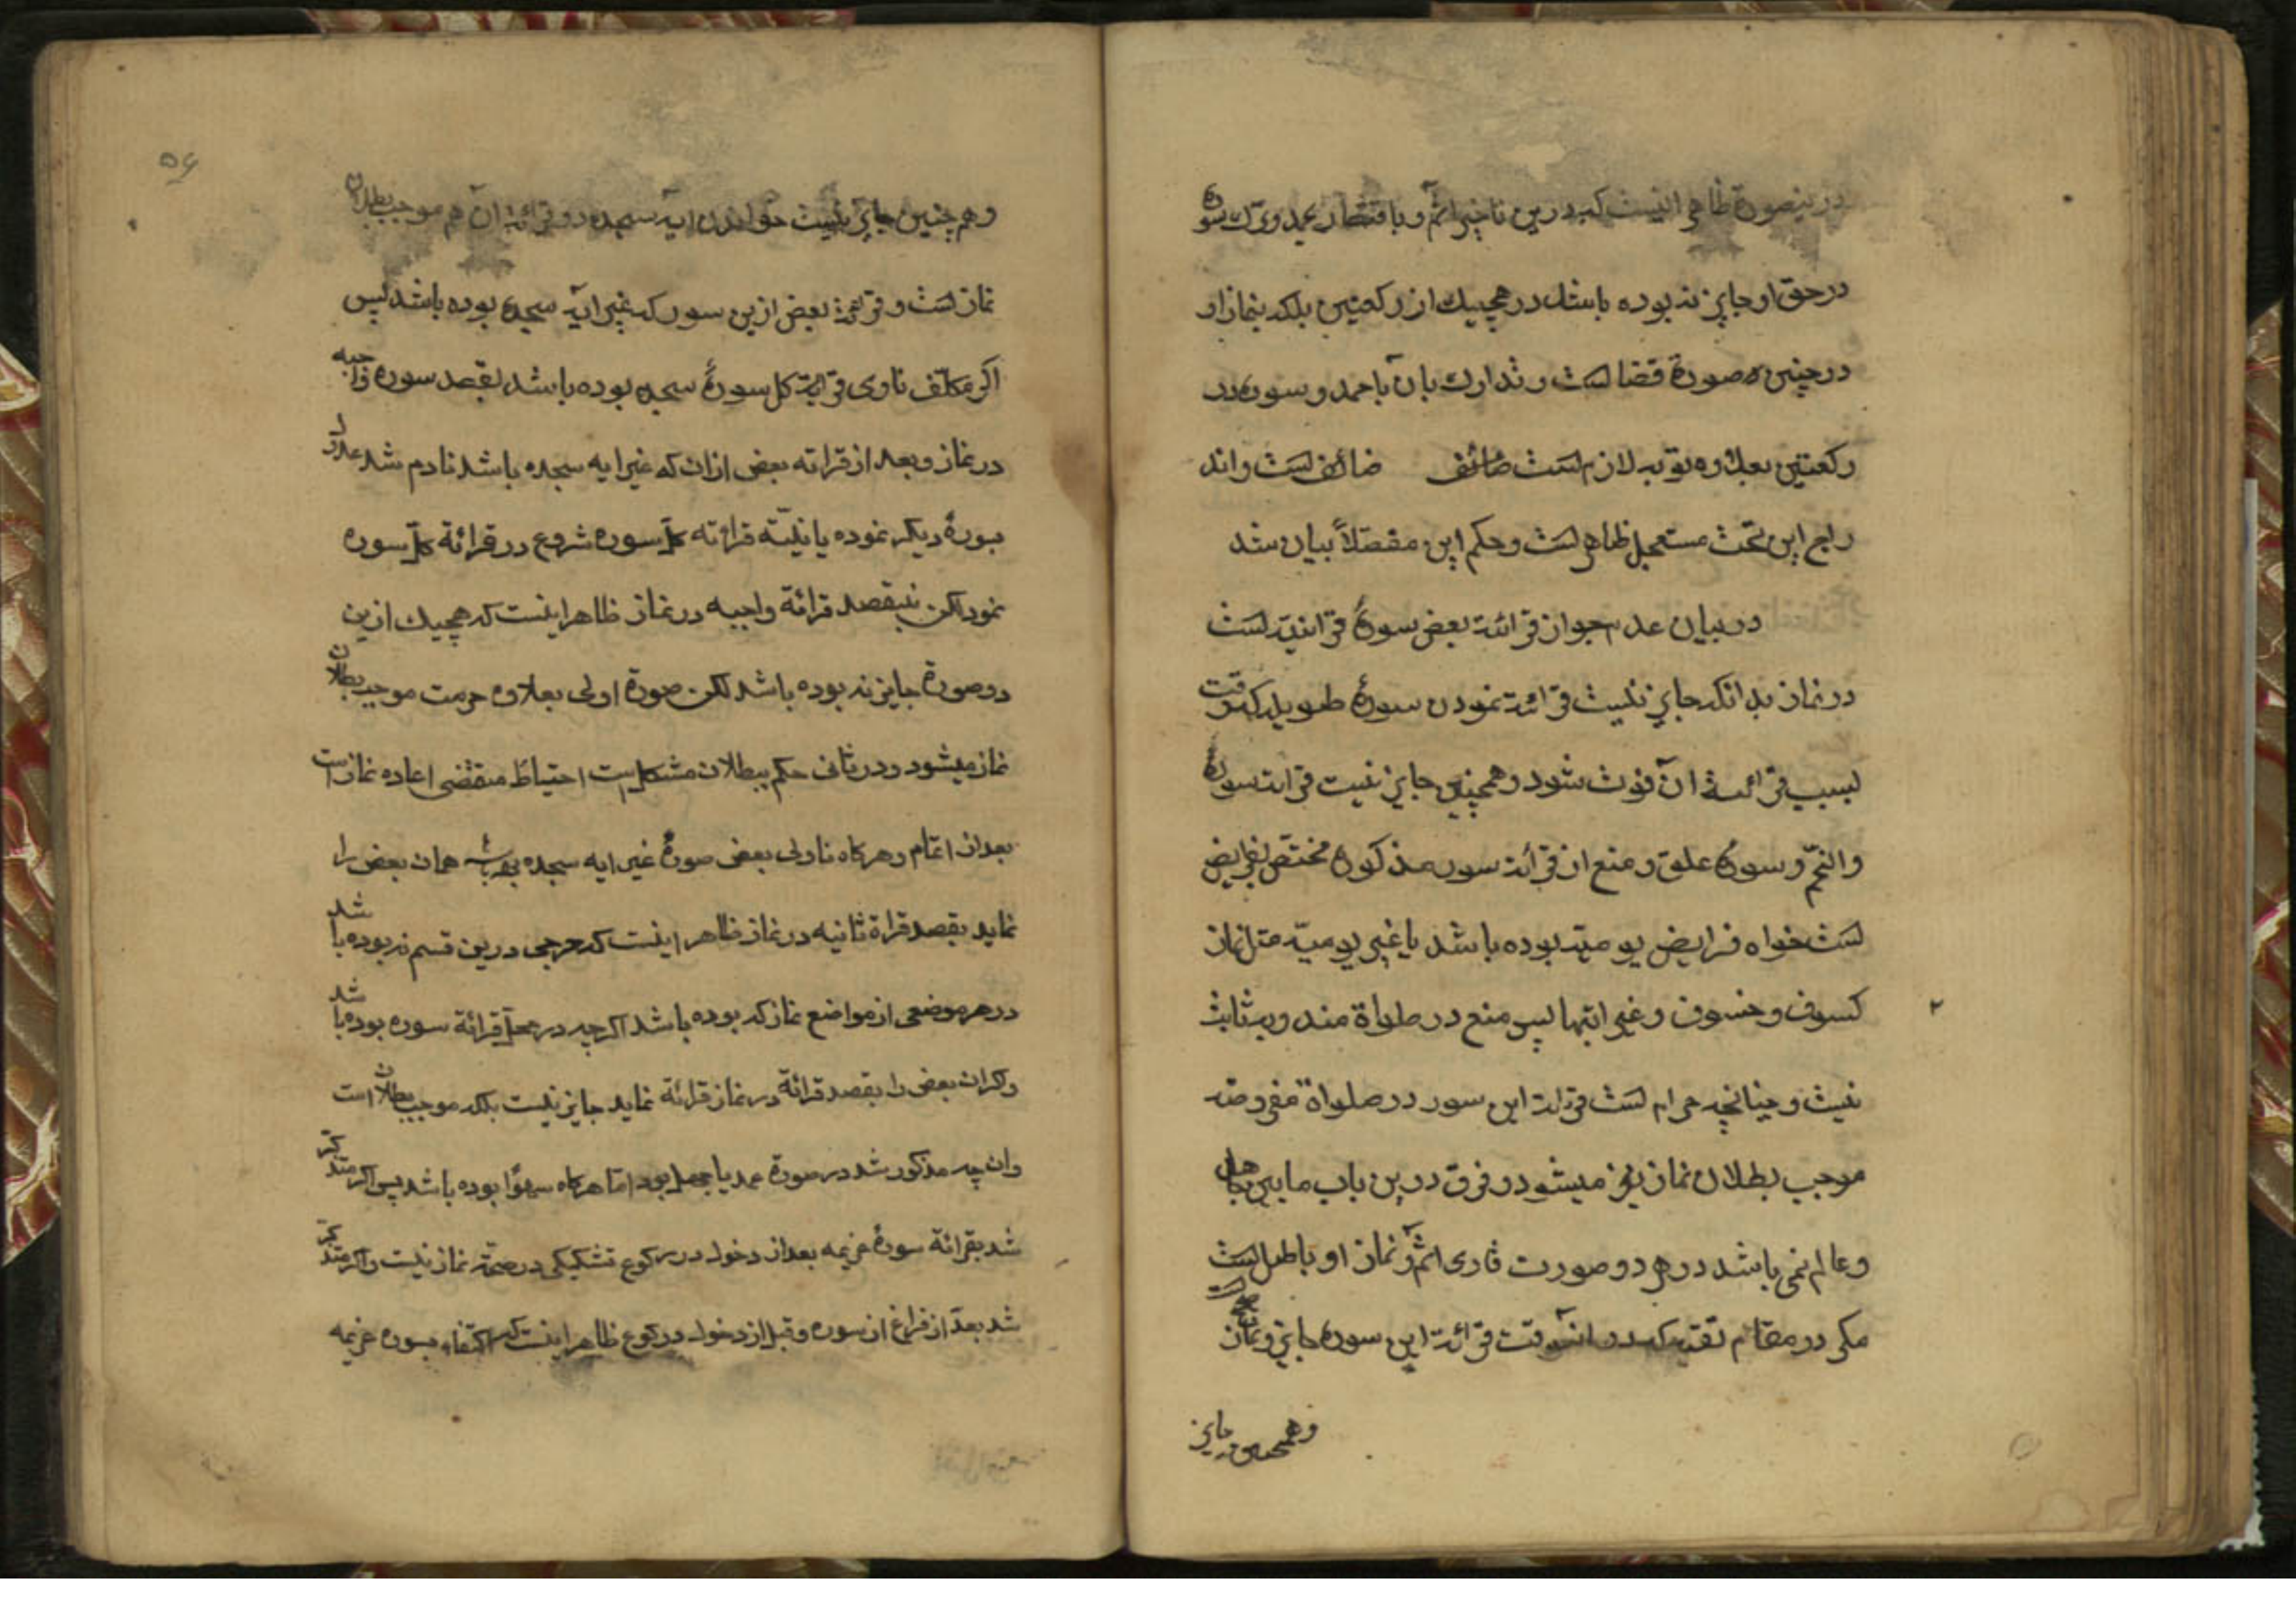 درینصورة ظاهر اینست که درین تاخیر آثم و باقتصار بحمد و ترک سوره
در حق او جایز نه بوده باشد در هیچیک از رکعتین بلکه نماز او
در چنین صورة قضا است و تدارک بان با حمد و سوره در
رکعتین بعلاوه توبه لازم است ضائف ضائف است و اند
راج این تحت مستعجل ظاهر است و حکم این مفصّلاً بیان شد
در بیان عدم جواز قرائة بعض سورهٔ قرانیّه است
در نماز بدانکه جایز نیست قرائة نمودن سورهٔ طویله که وقت
بسبب قرائة آن فوت شود و همچنین جایز نیست قرائة سوره
والنجم و سوره علق و منع از قرائة سور مذکوره مختصّ بفرایض
است خواه فرایض یومیّه بوده باشد یا غیر یومیّه مثل نماز
کسوف و خسوف و غیر اینها پس منع در صلواة مندوبه ثابت
نیست و چنانچه حرام است قرائة این سور در صلواة مفروضه
موجب بطلان نماز نیز میشود و فرق درین باب مابین جاهل
و عالم نمی باشد در هر دو صورت قاری آثم و نماز او باطل است
مکر در مقام تقیه که در آنوقت قرائة این سوره جایز و نماز صحیح است
و همچنین جایز
۵۶
و هم چنین جایز نیست خواندن ایه سجده و قرائة آن هم موجب بطلان
نماز است و قرائة بعض ازین سور که غیر ایه سجده بوده باشد پس
اکر مکلّف ناوی قرائة کل سورهٔ سجده بوده باشد بقصد سوره واجبه
در نماز و بعد از قرائه بعض ازان که غیر ایه سجده باشد نادم شد عدول
بسورهٔ دیکر نموده یا نیّت قرائه کل سوره شروع در قرائة کل سوره
نمود لکن نبقصد قرائة واجبه در نماز ظاهر اینست که هیچیک ازین
دو صورة جایز نه بوده باشد لکن صورة اولی بعلاوه حرمت موجب بطلان
نماز میشود و در ثانی حکم ببطلان مشکل است احتیاط مقتضی اعاده نماز است
بعد از اتمام و هرکاه ناوی بعض صورهٔ غیر ایه سجده بوده باشد همان بعض را
نماید بقصد قراة ثانیه در نماز ظاهر اینست که حرجی درین قسم نه بوده باشد
در هر موضعی از مواضع نماز که بوده باشد اکرچه در محلّ قرائة سوره بوده باشد
و اکر ان بعض را بقصد قرائة در نماز قرائة نماید جایز نیست بلکه موجب بطلان است
و ان چه مذکور شد در صورة عمد یا جهل بود امّا هرکاه سهوًا بوده باشد پس اکر متذکر
شد بقرائة سورهٔ عزیمه بعد از دخول در رکوع تشکیکی در صحّة نماز نیست و اکر متذکر
شد بعد از فراغ از سوره و قبل از دخول در رکوع ظاهر اینست که اکتفاء بسوره عزیمه